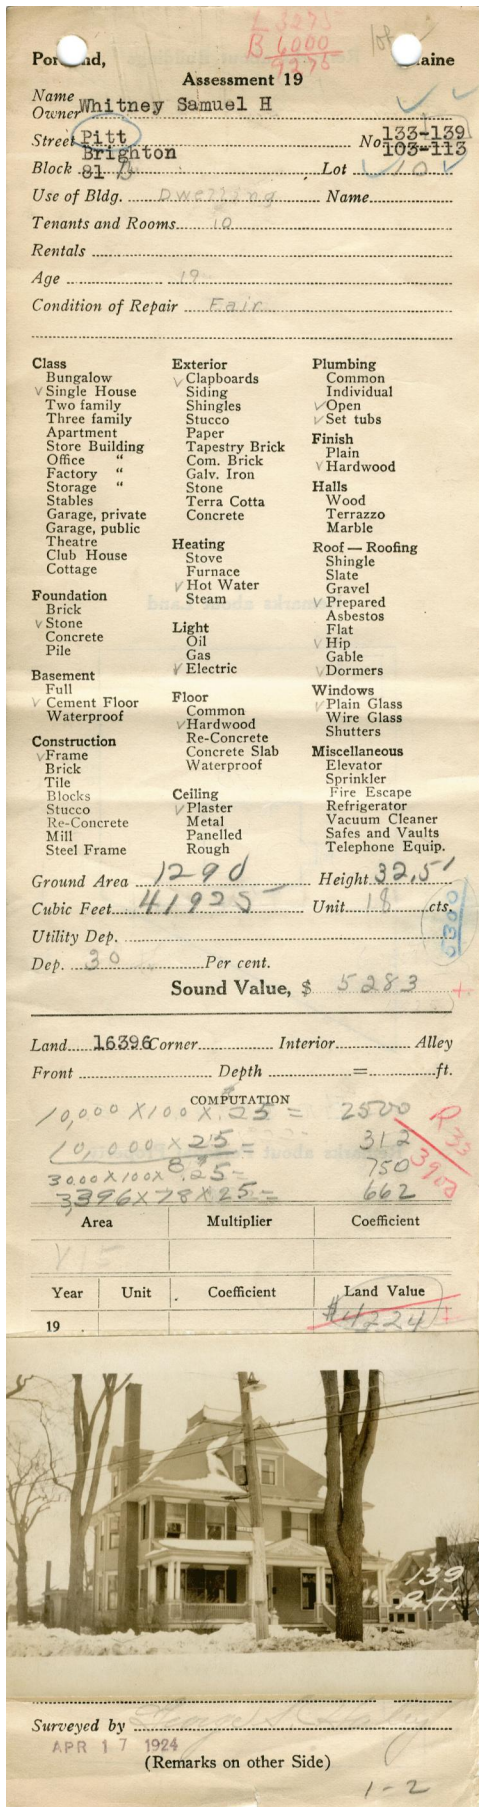 L 3275
B 6000
9275
Portland, Maine
Assessment 19
Name
Owner Whitney Samuel H
Street Pitt No 133-139
Brighton 103-113
Block 81 B Lot 10
Use of Bldg. Dwelling Name
Tenants and Rooms 10
Rentals
Age 19
Condition of Repair Fair
Class
Bungalow
√ Single House
Two family
Three family
Apartment
Store Building
Office "
Factory "
Storage "
Stables
Garage, private
Garage, public
Theatre
Club House
Cottage
Foundation
Brick
√ Stone
Concrete
Pile
Basement
Full
√ Cement Floor
Waterproof
Construction
√ Frame
Brick
Tile
Blocks
Stucco
Re-Concrete
Mill
Steel Frame
Exterior
√ Clapboards
Siding
Shingles
Stucco
Paper
Tapestry Brick
Com. Brick
Galv. Iron
Stone
Terra Cotta
Concrete
Heating
Stove
Furnace
√ Hot Water
Steam
Light
Oil
Gas
√ Electric
Floor
Common
√ Hardwood
Re-Concrete
Concrete Slab
Waterproof
Ceiling
√ Plaster
Metal
Panelled
Rough
Plumbing
Common
Individual
√ Open
√ Set tubs
Finish
Plain
√ Hardwood
Halls
Wood
Terrazzo
Marble
Roof — Roofing
Shingle
Slate
Gravel
√ Prepared
Asbestos
Flat
√ Hip
Gable
√ Dormers
Windows
√ Plain Glass
Wire Glass
Shutters
Miscellaneous
Elevator
Sprinkler
Fire Escape
Refrigerator
Vacuum Cleaner
Safes and Vaults
Telephone Equip.
Ground Area 1290 Height 32.5'
Cubic Feet 41925 Unit 18 cts.
Utility Dep.
Dep. 30 Per cent.
Sound Value, $ 5283 +
Land 16396 Corner Interior Alley
Front Depth = ft.
COMPUTATION
10,000 X 100 X .25 = 2500
10,000 X 25 = 312
8
3000 X 100 X .25 = 750
3,396 X 78 X 25 = 662
R 33
3900
Area Multiplier Coefficient
Year Unit Coefficient Land Value
19 $4224
139
Pitt
Surveyed by
APR 17 1924
(Remarks on other Side)
1-2